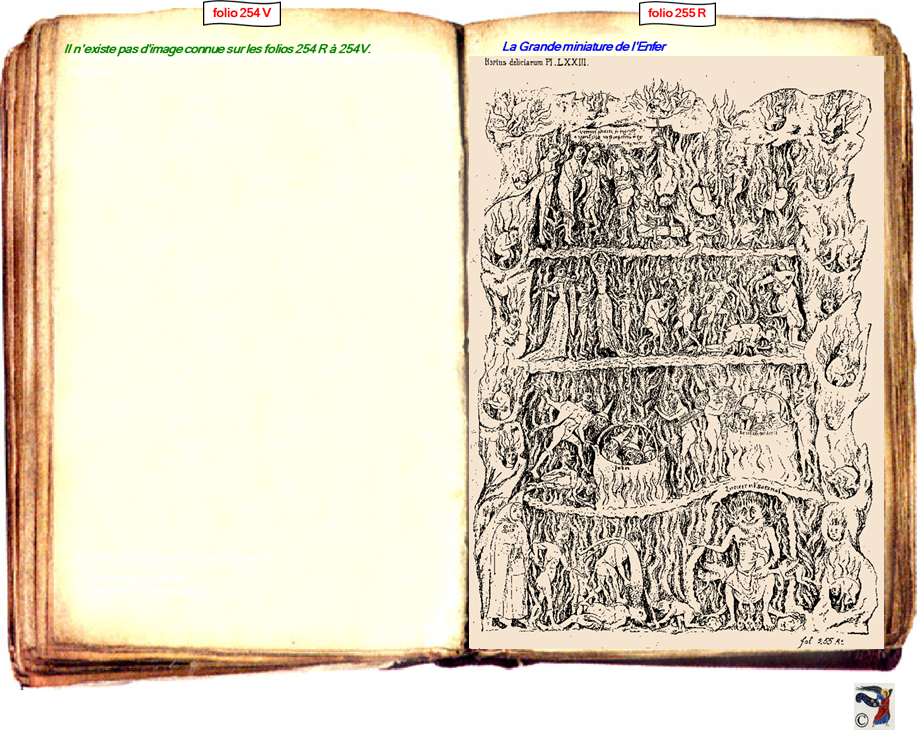 folio 254 V
folio 255 R
Il n'existe pas d'image connue sur les folios 254 R à 254V.
La Grande miniature de l'Enfer
Hortus deliciarum Pl. LXXIII.
fol 255 Ro
©